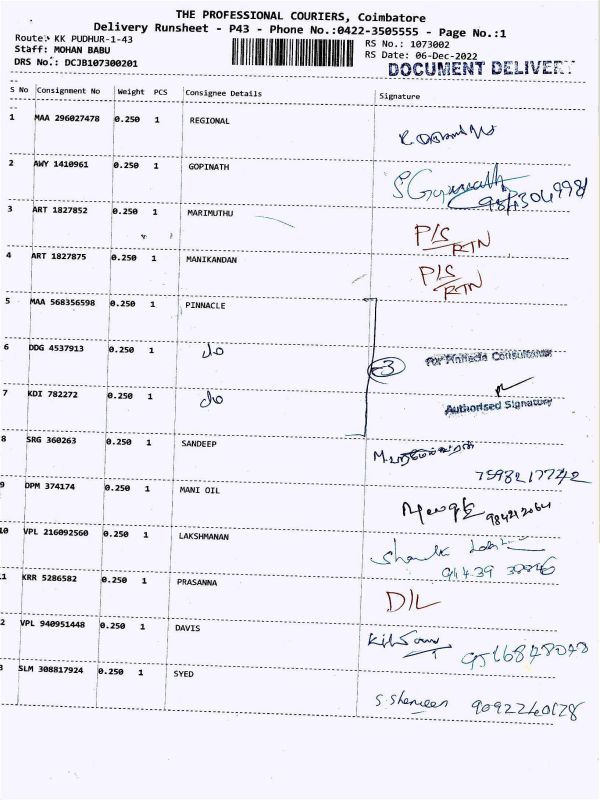 THE PROFESSIONAL COURIERS, Coimbatore
Delivery Runsheet - P43 - Phone No.:0422-3505555 - Page No.:1
Route: KK PUDHUR-1-43
RS No.: 1073002
Staff: MOHAN BABU
RS Date: 06-Dec-2022
DRS No.: DCJB107300201
DOCUMENT DELIVERY
S No Consignment No Weight PCS Consignee Details Signature
1 MAA 296027478 0.250 1 REGIONAL
2 AWY 1410961 0.250 1 GOPINATH S Gopinath
3 ART 1827852 0.250 1 MARIMUTHU P/S RTN
4 ART 1827875 0.250 1 MANIKANDAN P/S RTN
5 MAA 568356598 0.250 1 PINNACLE
6 DDG 4537913 0.250 1 do 3 For Pinnacle Consultants
7 KDI 782272 0.250 1 do Authorised Signatory
8 SRG 360263 0.250 1 SANDEEP
7598217742
9 DPM 374174 0.250 1 MANI OIL
10 VPL 216092560 0.250 1 LAKSHMANAN
11 KRR 5286582 0.250 1 PRASANNA D/L
2 VPL 940951448 0.250 1 DAVIS
3 SLM 308817924 0.250 1 SYED 9092240178